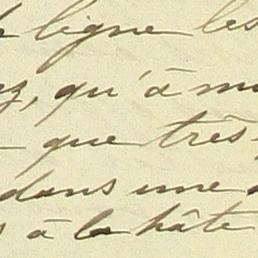 ligne les
ez, qu'à m
que très-
dans une
à la hâte